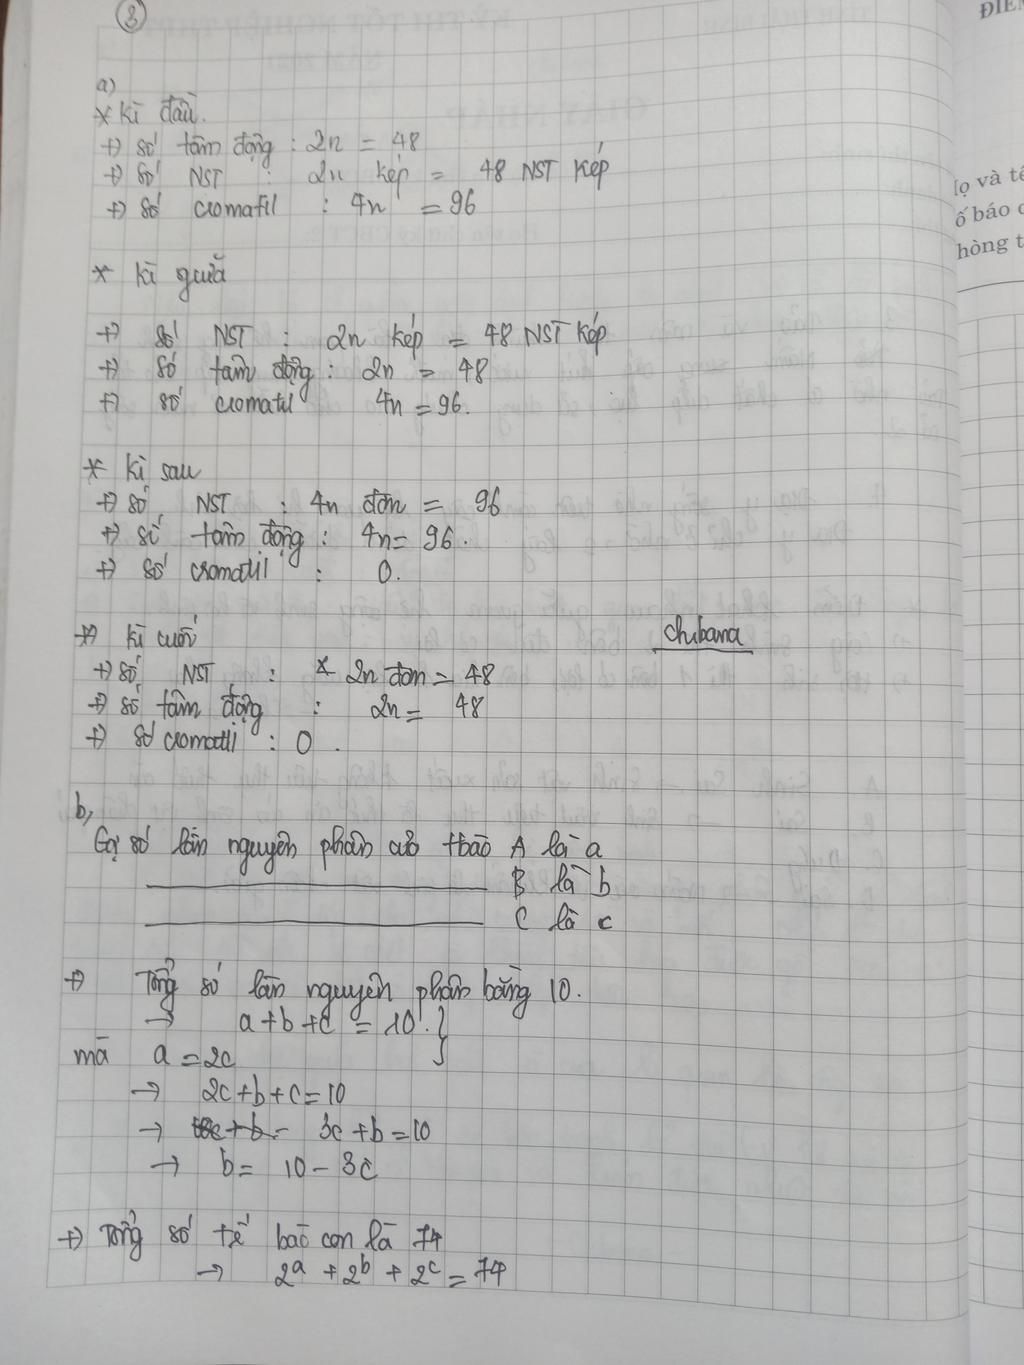 3
a)
* Kì đầu.
+) số tâm động : 2n = 48
+) số NST : 2n kép = 48 NST kép
+) số cromatit : 4n = 96
* kì giữa
+) số NST : 2n kép = 48 NST kép
+) số tâm động : 2n = 48
+) số cromatit 4n = 96.
* kì sau
+) số NST : 4n đơn = 96
+) số tâm động : 4n = 96.
+) số cromatit : 0.
* kì cuối
chibana
+) số NST : 2n đơn = 48
+) số tâm động : 2n = 48
+) số cromatit : 0.
b,
Gọi số lần nguyên phân của tbào A là a
B là b
C là c
+) Tổng số lần nguyên phân bằng 10.
→ a+b+c = 10 }
mà a = 2c
→ 2c+b+c=10
→ 3c+b=10
→ b = 10 - 3c
+) Tổng số tế bào con là 74
→ 2ᵃ + 2ᵇ + 2ᶜ = 74
ĐIỂ
Họ và tê
ố báo d
hòng t